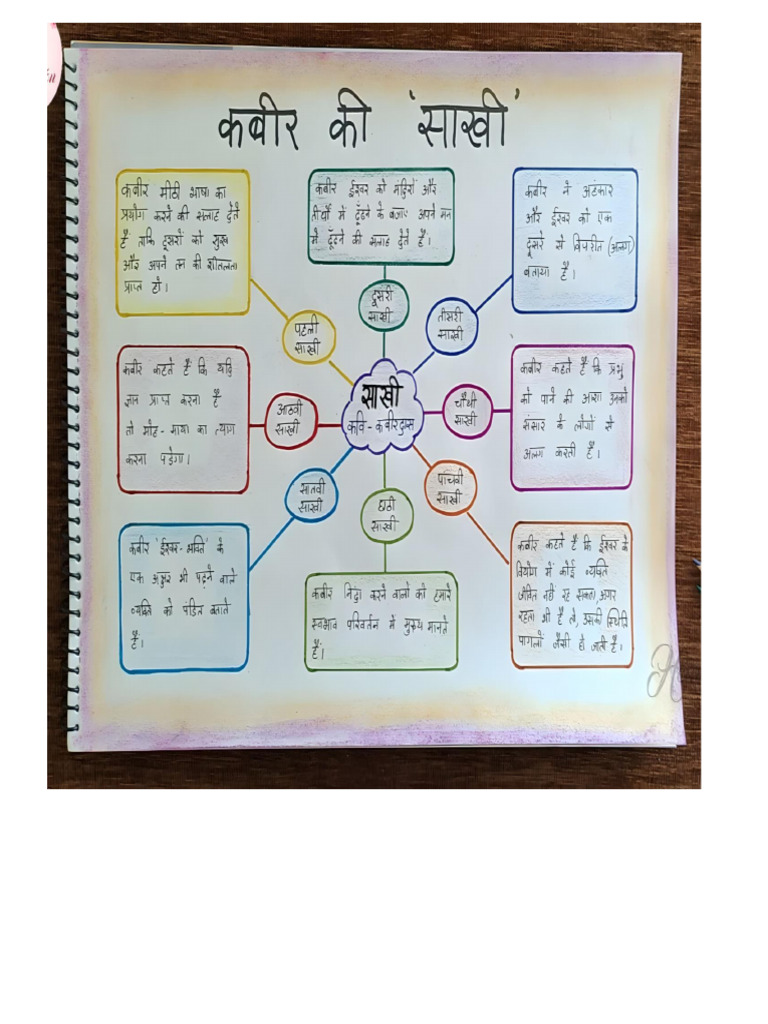 कबीर की 'साखी'
कबीर मीठी भाषा का
प्रयोग करने की सलाह देते
है ताकि दूसरों को सुख
और अपने तन की शीतलता
प्राप्त हो।
पहली
साखी
कबीर ईश्वर को मंदिरों और
तीर्थों में ढूँढने के बजाए अपने मन
में ढूँढने की सलाह देते है।
दूसरी
साखी
कबीर ने अहंकार
और ईश्वर को एक
दूसरे से विपरीत (अलग)
बताया है।
तीसरी
साखी
साखी
कवि - कबीरदास
कबीर कहते है कि प्रभु
को पाने की आशा उनको
संसार के लोगों से
अलग करती है।
चौथी
साखी
कबीर कहते है कि ईश्वर के
वियोग में कोई व्यक्ति
जीवित नहीं रह सकता, अगर
रहता भी है तो, उसकी स्थिति
पागलों जैसी हो जाती है।
पांचवी
साखी
छठी
साखी
कबीर निंदा करने वालो को हमारे
स्वभाव परिवर्तन में मुख्य मानते
हैं।
सातवी
साखी
कबीर 'ईश्वर - भक्ति' के
एक अक्षर भी पढ़ने वाले
व्यक्ति को पंडित बताते
है।
आठवी
साखी
कबीर कहते है कि यदि
ज्ञान प्राप्त करना है
तो मोह - माया का त्याग
करना पड़ेगा।